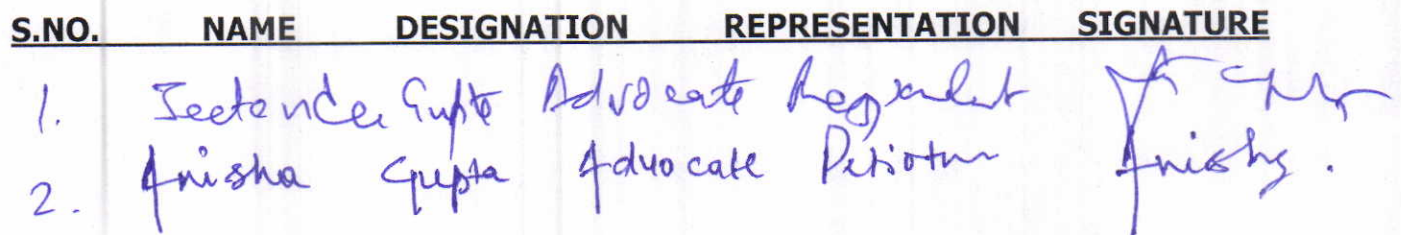 S.NO. NAME DESIGNATION REPRESENTATION SIGNATURE
1. Jeetender Gupta Advocate Respondent
2. Anisha Gupta Advocate Petitioner Anisha.